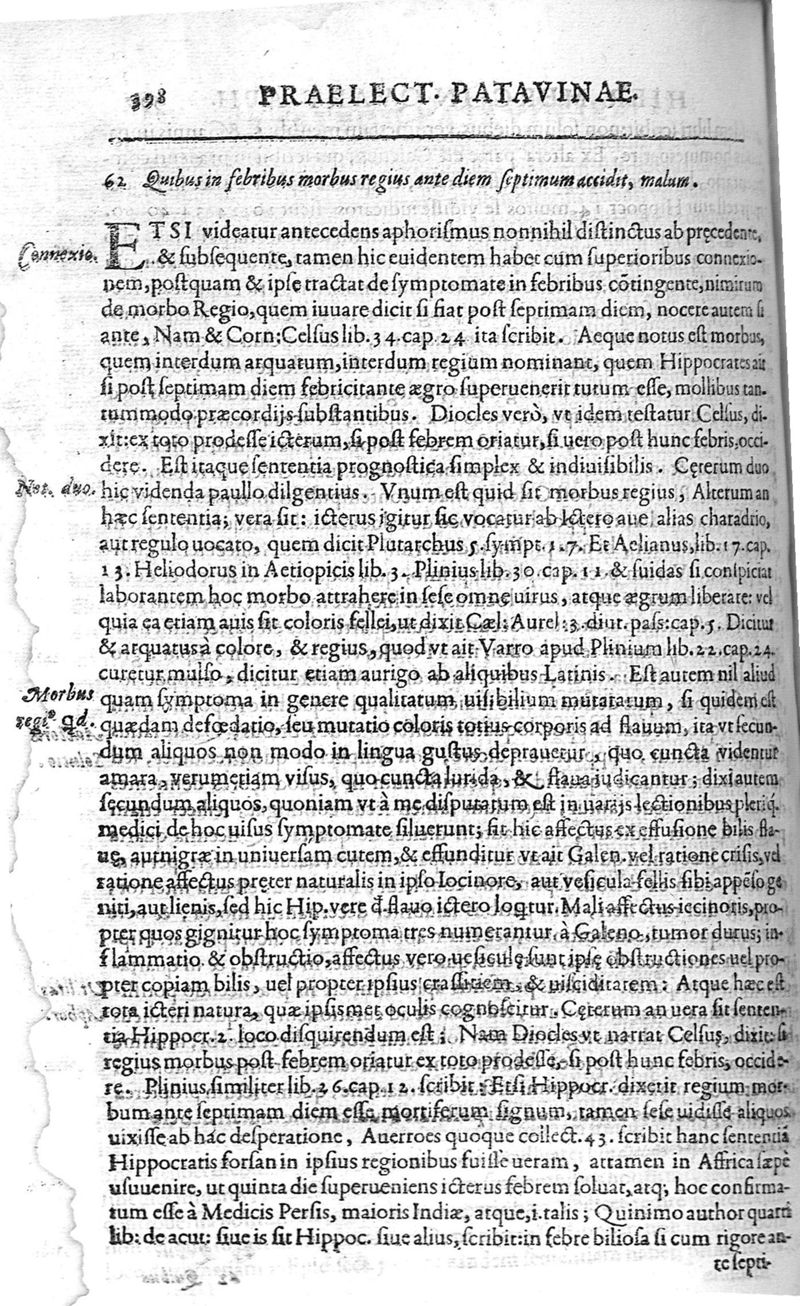 398 PRAELECT. PATAVINAE.
62 Quibus in febribus morbus regius ante diem septimum accidit, malum.
ETSI videatur antecedens aphorismus nonnihil distinctus ab pręcedente,
Connexio.
& subsequente, tamen hic euidentem habet cùm superioribus connexio-
nem, postquam & ipse tractat de symptomate in febribus cōtingente, nimirum
de morbo Regio, quem iuuare dicit si fiat post septimam diem, nocere autem si
ante, Nam & Corn: Celsus lib. 34. cap. 24 ita scribit. Aeque notus est morbus,
quem interdum arquatum, interdum regium nominant, quem Hippocrates ait
si post septimam diem febricitante ægro superuenerit tutum esse, mollibus tan-
tummodo præcordijs substantibus. Diocles verò, vt idem testatur Celsus, di-
xit: ex toto prodesse icterum, si post febrem oriatur, si uero post hunc febris, occi-
dere. Est itaque sententia prognostica simplex & indiuisibilis. Cęterum duo
Not. duo.
hic videnda paullo dilgentius. Vnum est quid sit morbus regius, Alterum an
hæc sententia; vera sit: icterus igitur sic vocatur ab Ictero aue, alias charadrio,
aut regulo uocato, quem dicit Plutarchus 5. sympt. 1.7. Et Aelianus, lib. 17. cap.
13. Heliodorus in Aetiopicis lib. 3. Plinius lib. 30 cap. 11 & suidas si conspiciat
laborantem hoc morbo attrahere in sese omne uirus, atque ægrum liberare: vel
quia ea etiam auis sit coloris fellei, ut dixit Cæl: Aurel: 3. diut. pass: cap. 5. Dicitur
& arquatus à colore, & regius, quod vt ait Varro apud Plinium lib. 22. cap. 24.
curetur mulso, dicitur etiam aurigo ab aliquibus Latinis. Est autem nil aliud
Morbus
quam symptoma in genere qualitatum uisibilium mutatarum, si quidem est
regi⁹ qd.
quædam defœdatio, seu mutatio coloris totius corporis ad flauum, ita vt secun-
dum aliquos non modo in lingua gustus deprauetur, quo cuncta videntur
amara, verumetiam visus, quo cuncta lurida, & flaua judicantur; dixi autem
secundum aliquos, quoniam vt à me disputatum est in uarijs lectionibus pleriq.
medici de hoc uisus symptomate siluerunt; fit hic affectus ex effusione bilis fla-
uę, aut nigræ in universam cutem, & effunditur vt ait Galen. vel ratione crisis, vel
ratione affectus pręter naturalis in ipso Iocinore, aut vesicula fellis sibi appēso ge
niti, aut lienis, sed hic Hip. vere d̄ flauo ictero loq̄tur. Mali affectus iecinoris, pro-
pter quos gignitur hoc symptoma tres numerantur. à Galeno, tumor durus; in-
flammatio & obstructio, affectus vero uesiculę sunt ipsę obstructiones uel pro-
pter copiam bilis, uel propter ipsius crassitiem, & uisciditatem: Atque hæc est
tota icteri natura, quæ ipsismet oculis cognoscitur. Cęterum an uera sit senten-
tia Hippocr. 2. loco disquirendum est; Nam Diocles vt narrat Celsus, dixit: si
regius morbus post febrem oriatur ex toto prodesse, si post hunc febris, occide-
re. Plinius similiter lib. 26. cap. 12. scribit: Etsi Hippocr. dixerit regium mor-
bum ante septimam diem esse, mortiferum signum, tamen sese uidisse aliquos
uixisse ab hác desperatione, Auerroes quoque collect. 43. scribit hanc sententiā
Hippocratis forsan in ipsius regionibus fuisse ueram, attamen in Affrica sæpè
usuuenire, ut quinta die superueniens icterus febrem soluat, atq; hoc confirma-
tum esse à Medicis Persis, maioris Indiæ, atque, i. talis; Quinimo author quarti
lib: de acut: siue is sit Hippoc. siue alius, scribit: in febre biliosa si cum rigore an-
te septi-